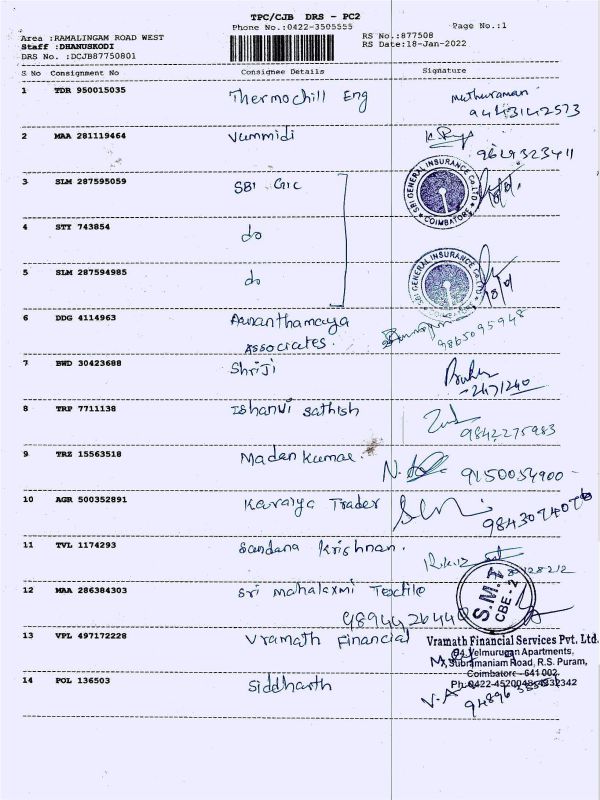 TPC/CJB DRS - PC2
Phone No.:0422-3505555 Page No.:1
Area :RAMALINGAM ROAD WEST RS No.:877508
Staff :DHANUSKODI RS Date:18-Jan-2022
DRS No. :DCJB87750801
S No Consignment No Consignee Details Signature
1 TDR 950015035 Thermochill Eng Muthuraman
9443142573
2 MAA 281119464 Vummidi
3 SLM 287595059 SBI GIC
SBI GENERAL INSURANCE Co.LTD. COIMBATORE
4 STY 743854 do
5 SLM 287594985 do
SBI GENERAL INSURANCE Co.LTD. COIMBATORE
6 DDG 4114963
Associates. 9865095948
7 BWD 30423688 Shriji
8 TRP 7711138 Ishanvi Sathish
9842275983
9 TRZ 15563518 Madan Kumar. 9150054900
10 AGR 500352891 Trader
11 TVL 1174293 Sandana Krishnan.
12 MAA 286384303 Sri mahalaxmi Textile
S.M.T CBE-2
13 VPL 497172228 Vramath Financial Vramath Financial Services Pvt. Ltd.
Velmurugan Apartments,
Subramaniam Road, R.S. Puram,
Coimbatore - 641 002.
14 POL 136503 Siddharth